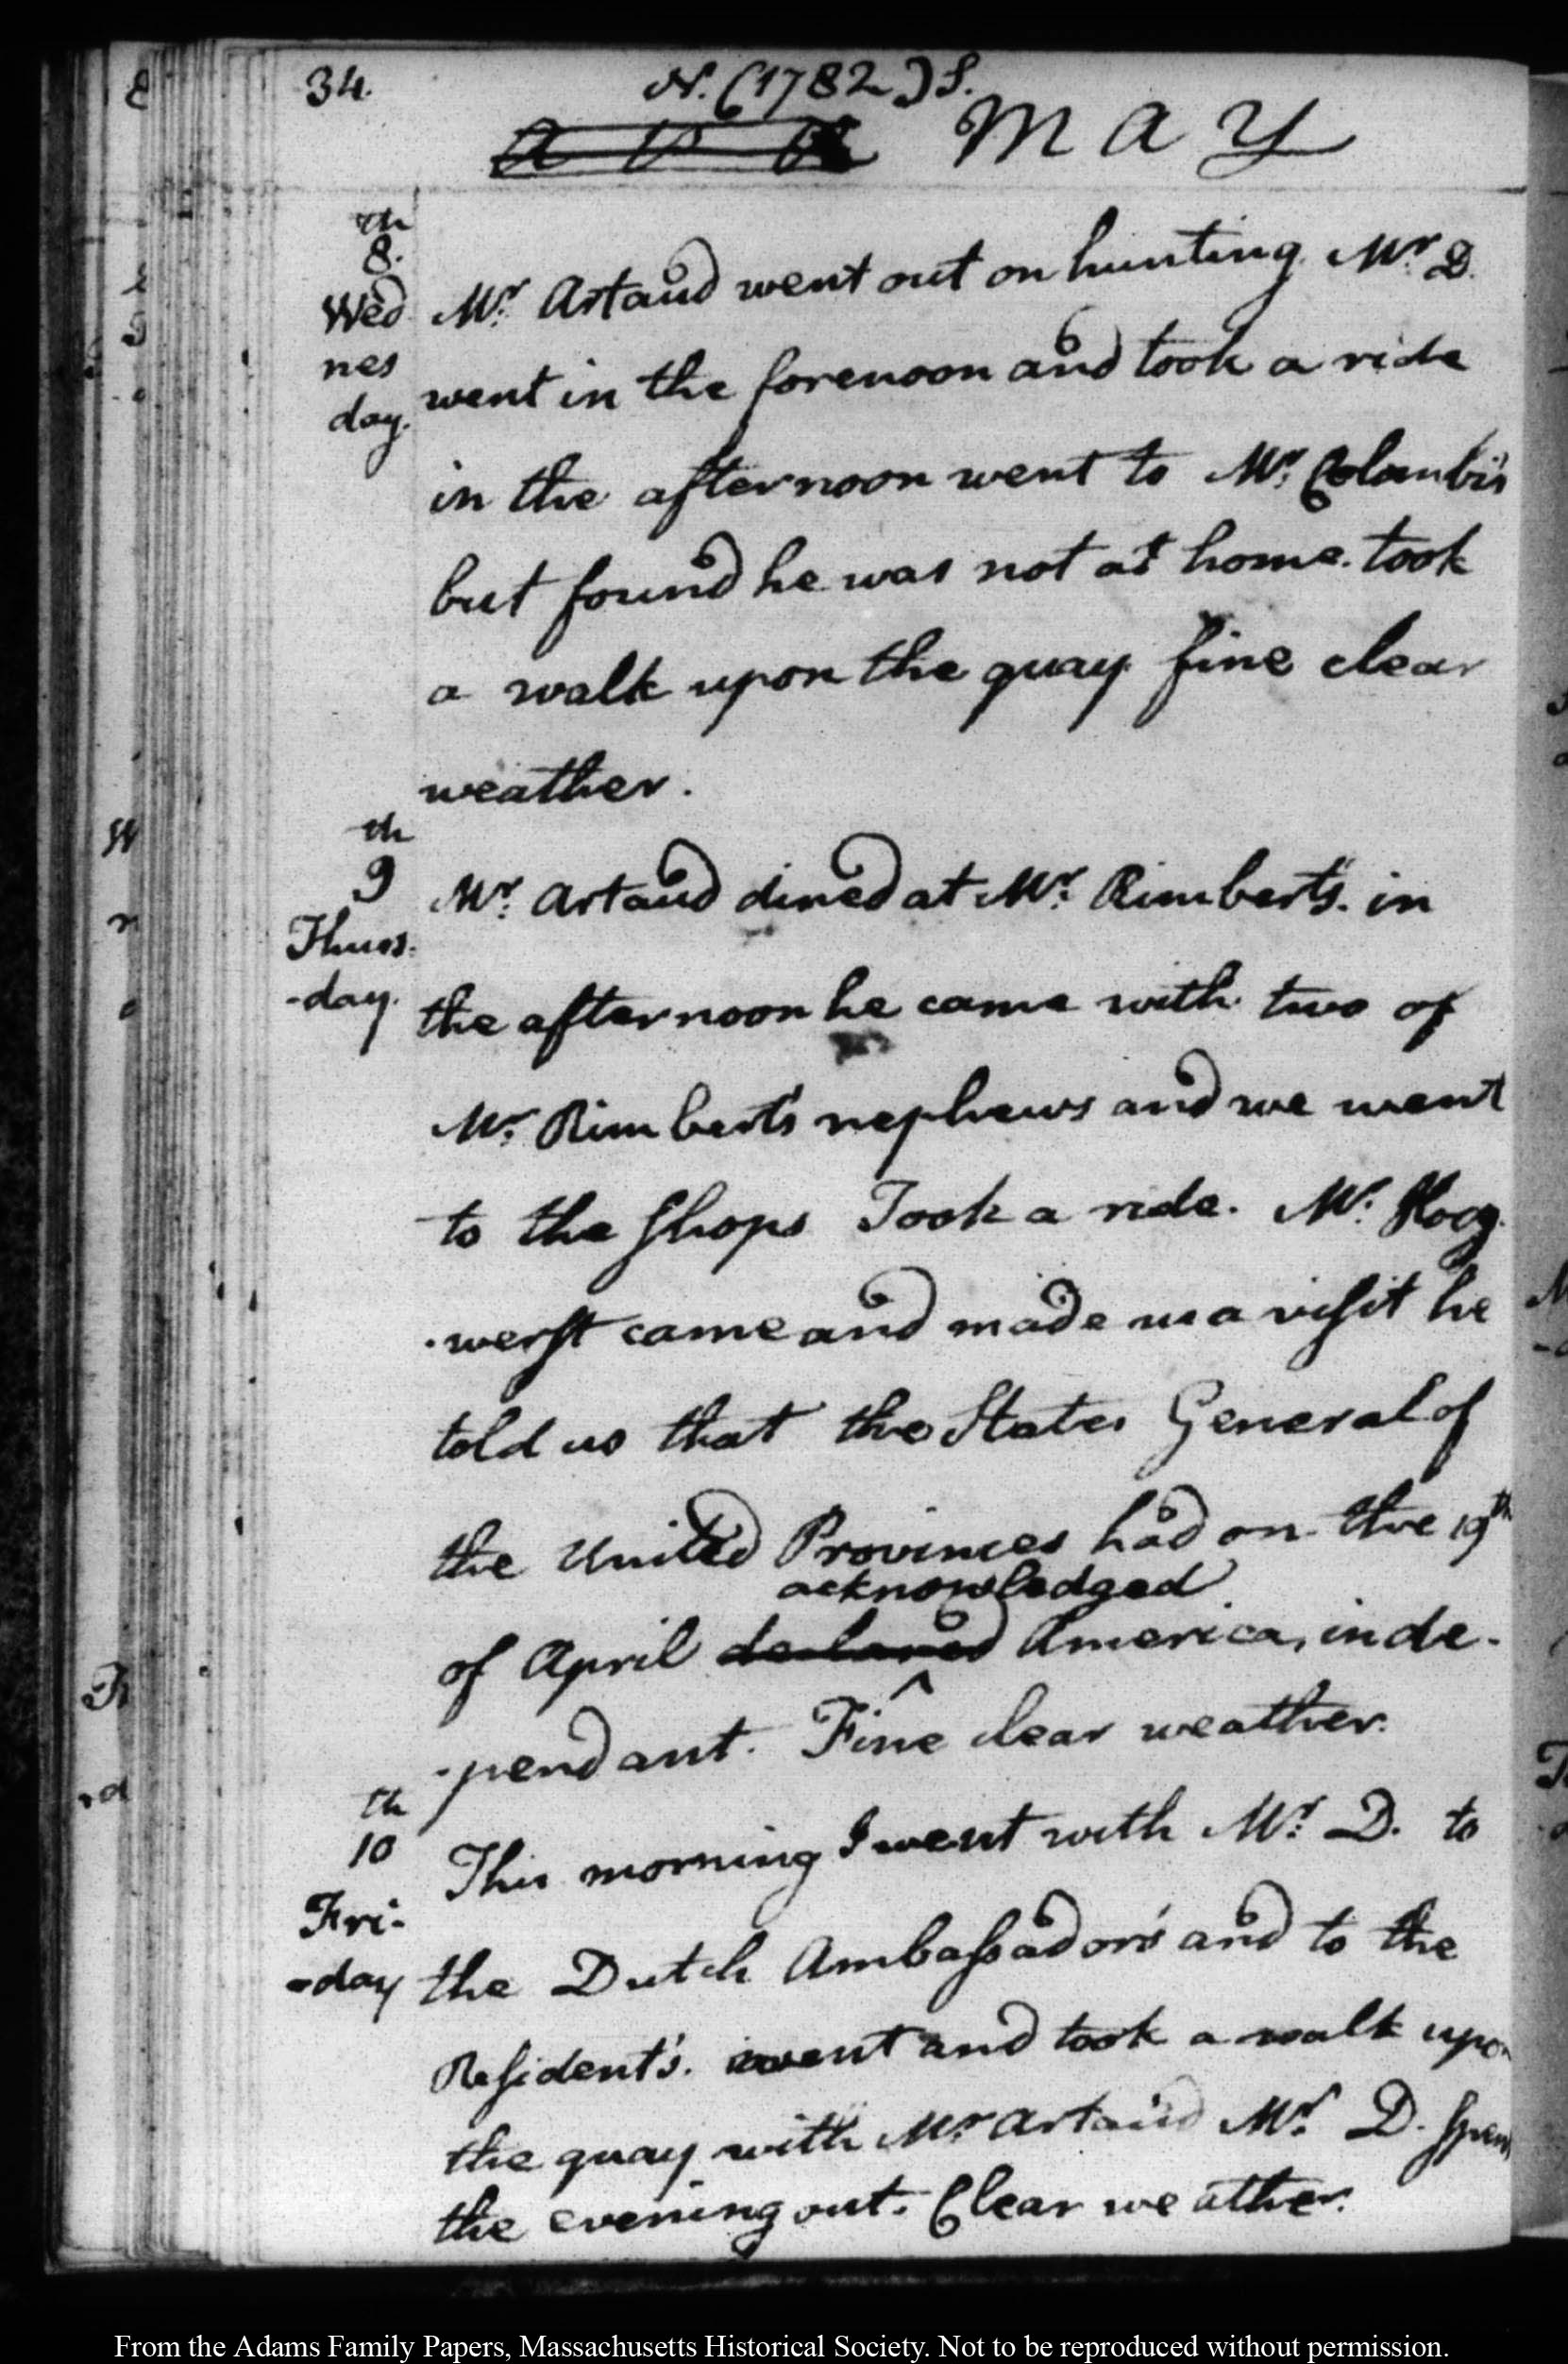 34.
N. (1782) S.
MAY
th
8.
Wed
nes
day.
Mr. Artaud went out on hunting. Mr. D.
went in the forenoon and took a ride
in the afternoon went to Mr. Colombi's
but found he was not at home. took
a walk upon the quay. fine clear
weather.
th
9
Thurs-
-day.
Mr. Artaud dined at Mr. Rimbert's. in
the afternoon he came with two of
Mr. Rimbert's nephews and we went
to the shops Took a ride. Mr. Hoog-
-werst came and made us a visit he
told us that the States General of
the United Provinces had on the 19th
acknowledged
of April declared America, inde-
-pendant. Fine clear weather.
th
10
Fri-
-day
This morning I went with Mr. D. to
the Dutch Ambassador's and to the
Resident's. went and took a walk upon
the quay with Mr. Artaud Mr. D. spent
the evening out. Clear weather.
From the Adams Family Papers, Massachusetts Historical Society. Not to be reproduced without permission.